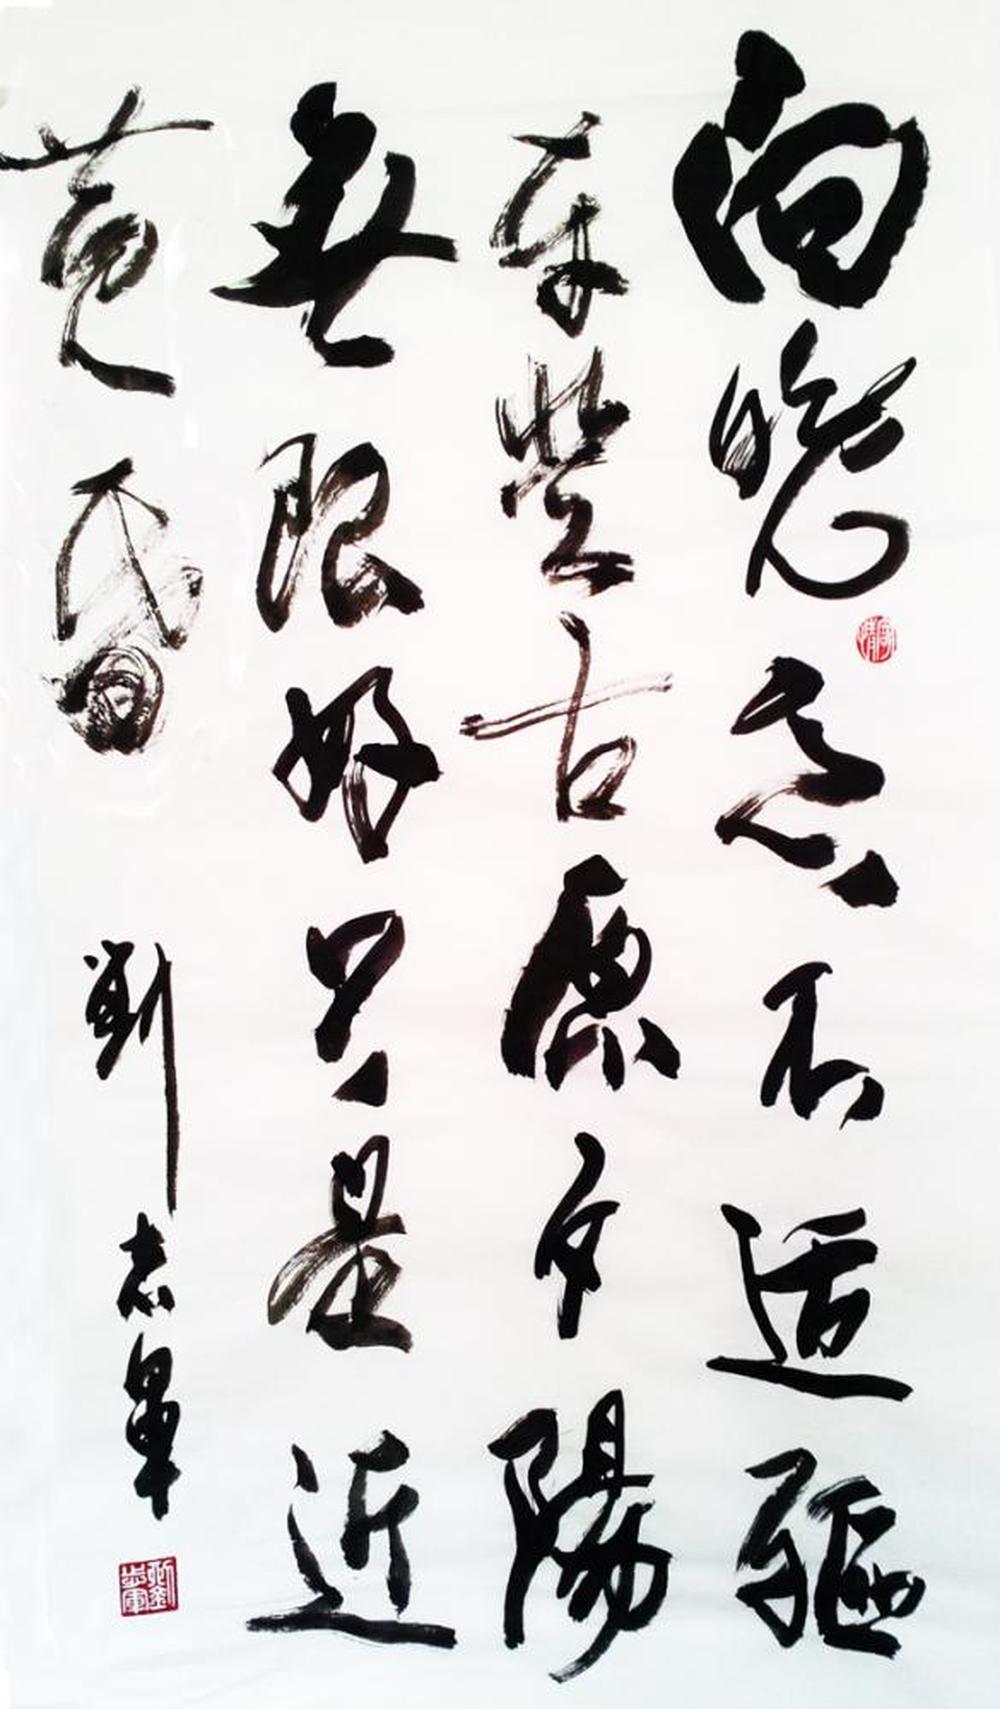 向晚意不适驅
车登古原夕陽
無限好只是近
黄昏 劉志軍